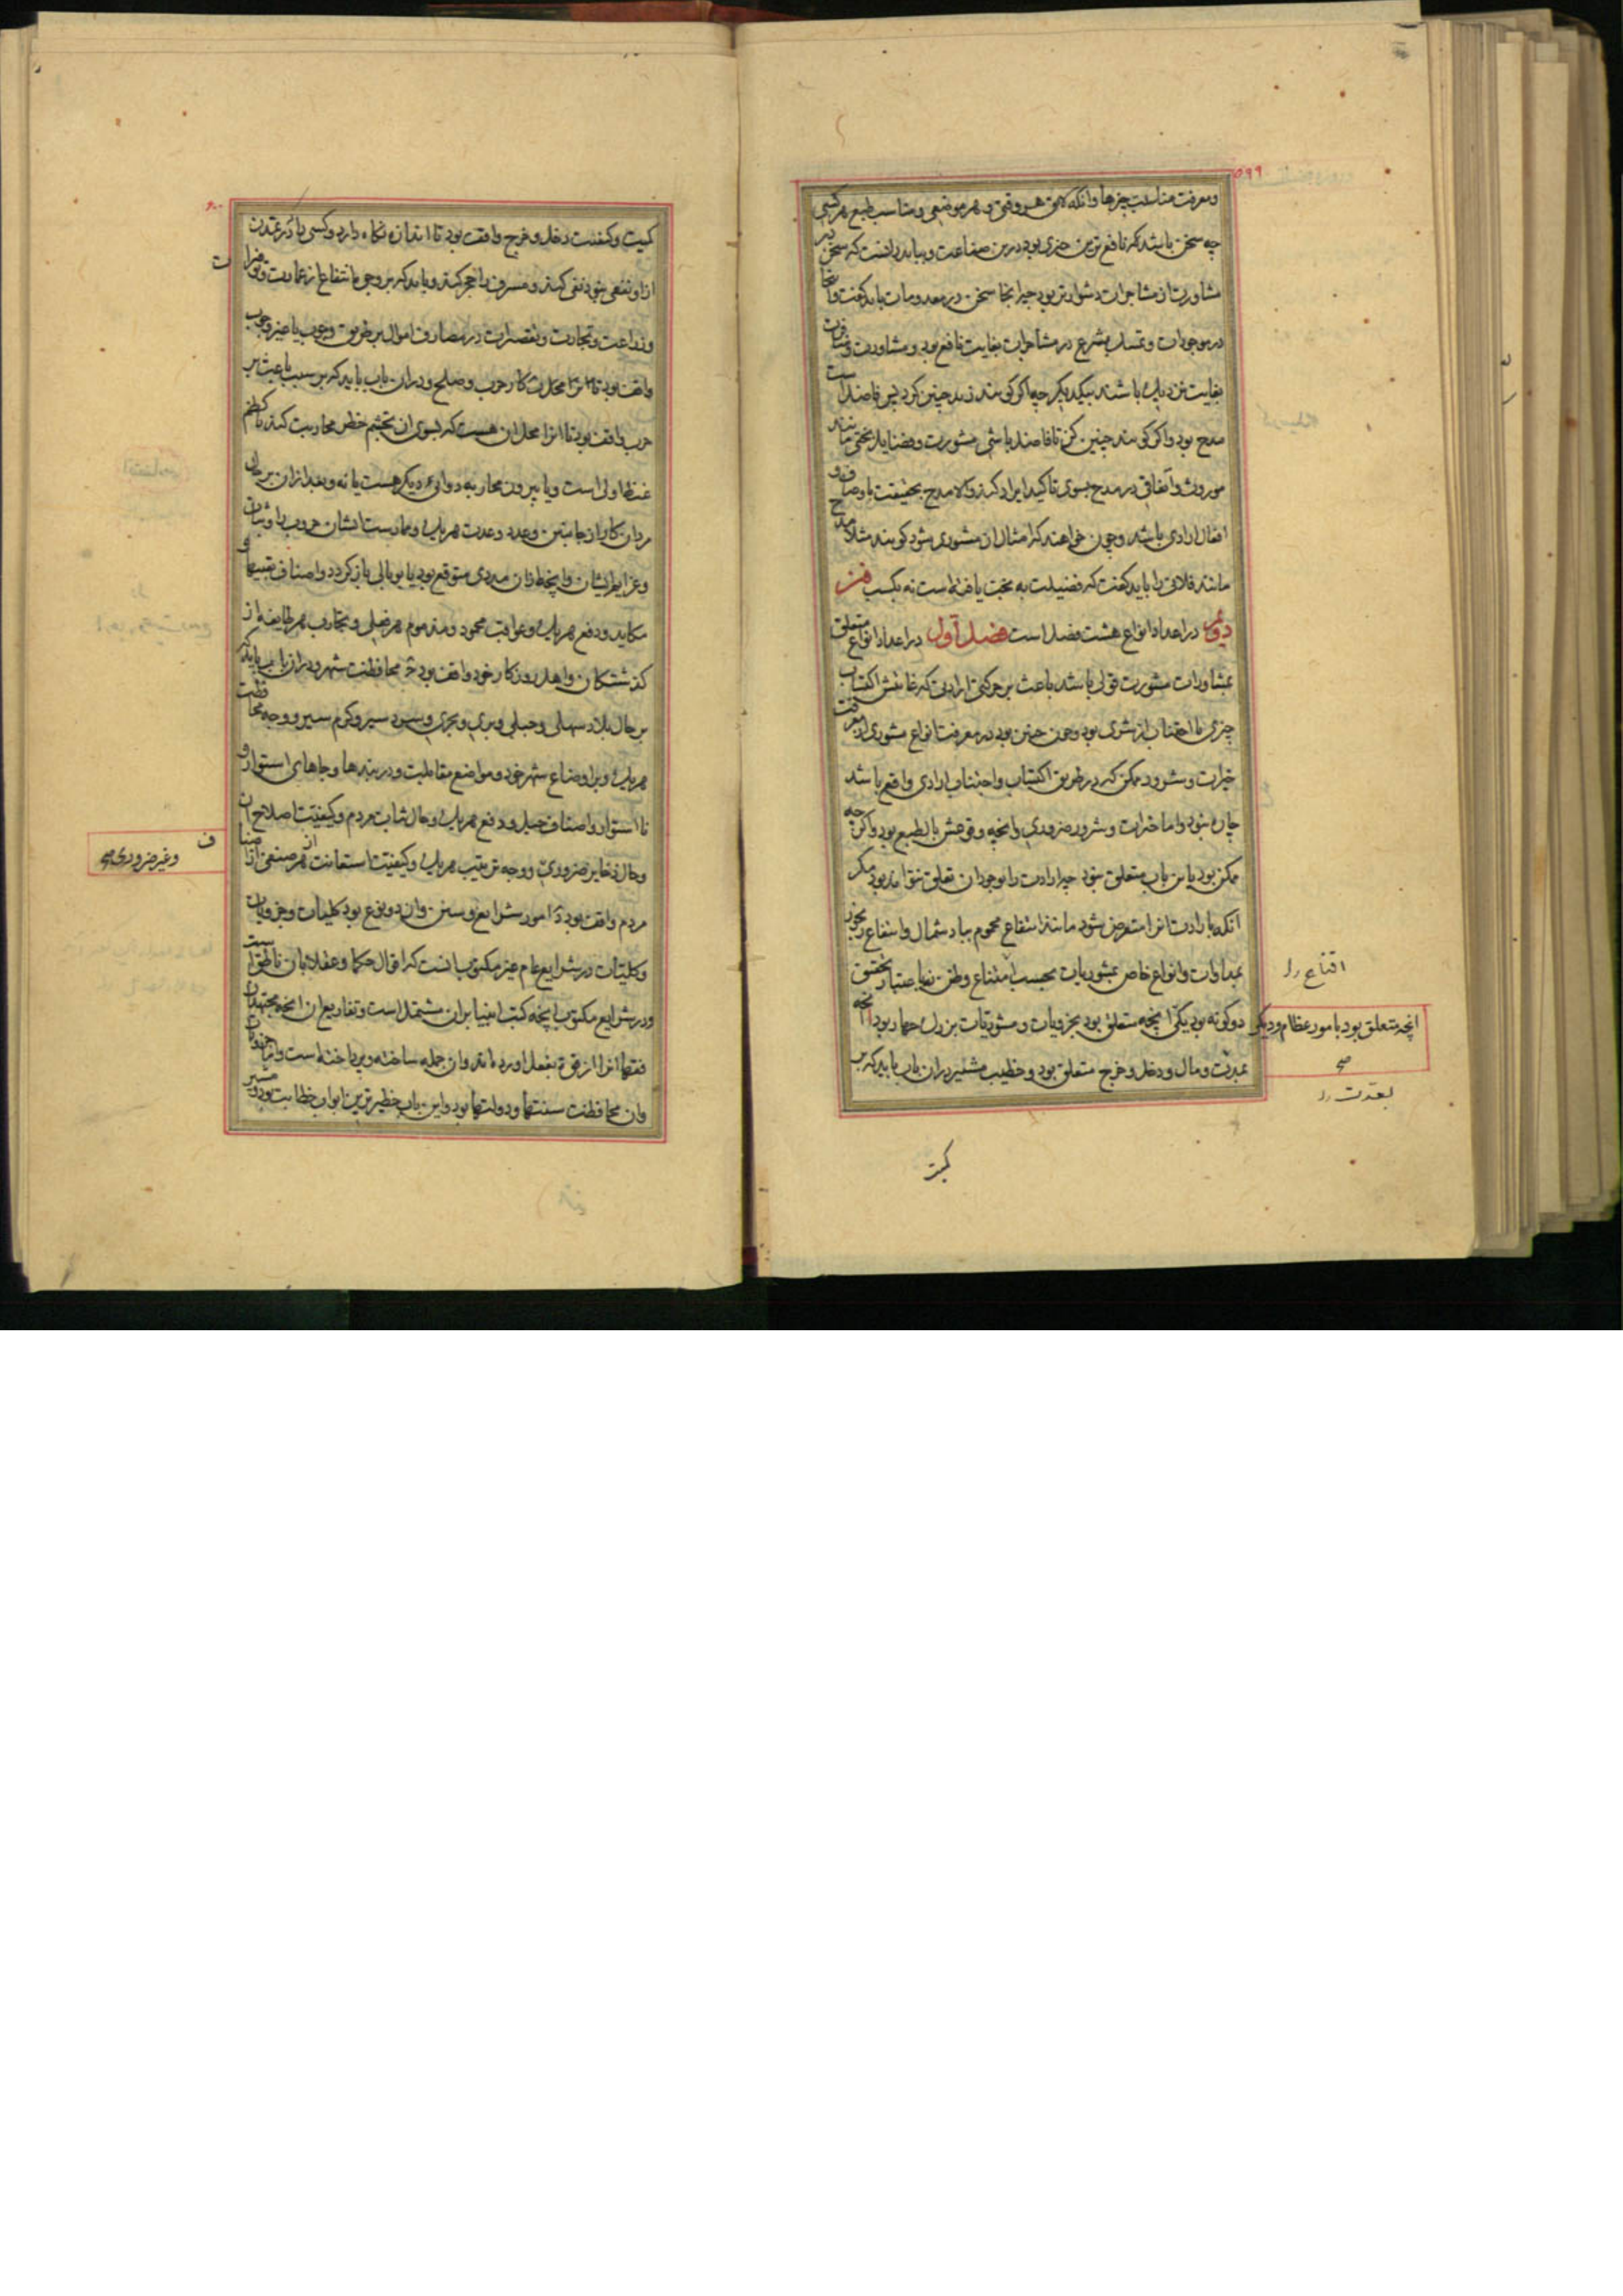 ۵۹۹
ومعرفت مناسبت چیزها وانکه لایق هر وقتی و هر موضعی ومناسب طبع هر کسی
چه سخن باشد که نافع ترین چیزی بود درین صناعت و بباید دانست که سخن در
مشاورت از مشاجرات دشوارتر بود چه انجا سخن در معدومات باید گفت وانجا
در موجودات و تمسک بشرع در مشاجرات بغایت نافع بود و مشاورت ومنافرت
بغایت نزدیک باشند بیکدیگر چه اگر گویند زید چنین کرد پس فاضل است
مدح بود واگر گویند چنین کن تا فاضل باشی مشورت و فضایل بختی مانند
موروث واتفاقی در مدح بسوی تاکید ایراد کنند والا مدح بحقیقت باوصاف و
افعال ارادی باشد وچون خواهند که امثال ان مشوری شود گویند مثلا مدح
مانند فلانی را باید گفت که فضیلت به بخت یافته است نه بکسب فن
دوم در اعداد انواع هشت فصل است فصل اول در اعداد انواع متعلق
بمشاورات مشورت قولی باشد باعث بر حرکتی ارادی که غایتش اکتساب
چیزی یا اجتناب از شری بود وچون چنین بود در معرفت انواع مشوری از معرفت
خیرات و شرور ممکن که در طریق اکتساب واجتناب ارادی واقع باشد
چاره نبود واما خیرات وشرور ضروری وانچه وقوعش بالطبع بود واگر چه
ممکن بود باین باب متعلق نبود چه ارادت را بوجود ان تعلق نتواند بود مگر
انکه بارادت انرا متعرض شود مانند انتفاع محموم بباد شمال وانتفاع
بمداوات وانواع خاص بمشوریات بحسب امتناع وظن نه باعتبار تحقیق
دوگونه بود یکی انچه متعلق بود بجزویات ومشوریات بزرگ چهار بود ا انچه
بمدن ومال ودخل وخرج متعلق بود وخطیب مشیر دران باب باید که بر
اقناع
انچه متعلق بود بامور عظام ودیگر
صح
کمیت
۶۰۰
کمیت وکیفیت دخل و خرج واقف بود تا اندازه نگاه دارد وکسی را که در تمدن
ازو نفعی نبود نفی کند ومسرف را حجر کند وباید که بر وجوه انتفاع از عمارت
وزراعت وتجارت وتقصیرات در مصارف اموال بر طریق وجوب یا غیر وجوب
واقف بود محل کار حرب وصلح ودران باب باید که بر سبب باعث بر
حرب واقف بود تا انرا محل ان هست که بسوی ان تجشم خطر محاربت کنند یا کظم
غیظ اولی است ویا بیرون محاربه دوائی دیگر هست یا نه وبعد ازان بر حال
مردان کار از جانبین وعدد وعدت هر یک وممارست ایشان حروب را وثبات
وعزایم ایشان وانچه ازان مددی متوقع بود یا وبالی بازگردد واصناف تعبیها و
مکاید ودفع هر یک وعواقب محمود ومذموم هر فعلی وتجارب هر طایفه از
گذشتگان واهل روزگار خود واقف بود ج محافظت شهر ودران باب باید که
بر حال بلاد سهلی وجبلی وبری وبحری ووجه محافظت
هر یک وبر اوضاع شهر خود ومواضع مقابلت ودربندها وجاهای استوار و
نااستوار واصناف حیل ودفع هر یک وحال ثبات مردم وکیفیت اصلاح ان
وحال ذخایر ضروری ووجه ترتیب هر یک وکیفیت استعانت هر صنفی از اصناف
مردم واقف بود د امور شرایع وسنن وان دو نوع بود کلیات وجزویات
وکلیات در شرایع عام غیر مکتوب انست که اقوال حکما وعقلا بان ناطق است
ودر شرایع مکتوب انچه کتب انبیا بران مشتمل است وتفاریع ان انچه مجتهدان
فقها انرا از قوة بفعل اورده اند وان جمله ساخته وپرداخته است واما جزویات
وان محافظت سنتها ودولتها بود واین باب خطیرترین ابواب خطابت بود
وغیر ضروری صح